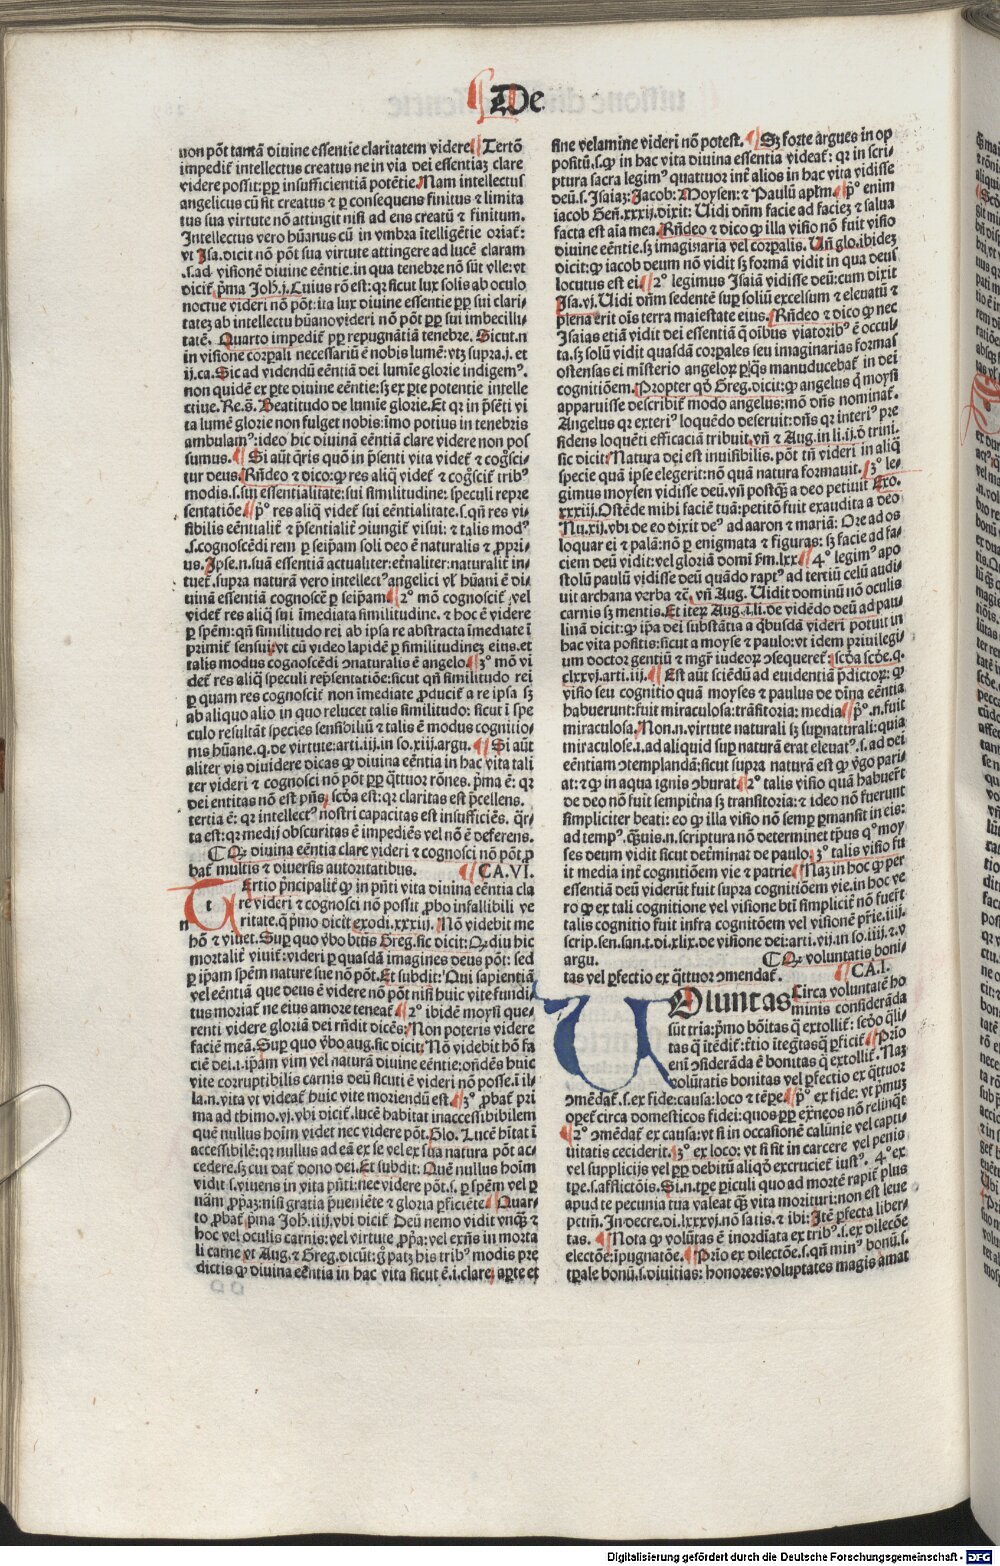 De
non põt tantã diuine essentie claritatem videre. Tertõ
impedit̃ intellectus creatus ne in via dei essentiaz clare
videre possit: ꝓp insufficientiã potẽtie. Nam intellectus
angelicus cũ sit creatus ⁊ ꝑ consequens finitus ⁊ limita
tus sua virtute nõ attingit nisi ad ens creatũ ⁊ finitum.
Intellectus vero hũanus cũ in vmbra ĩtelligẽtie oriat̃:
vt Isa. dicit nõ põt sua virtute attingere ad lucẽ claram
.s. ad visionẽ diuine eẽntie. in qua tenebre nõ sũt vlle: vt
dicit̃ pma Joh. j. Cuius rõ est: qr sicut lux solis ab oculo
noctue videri nõ põt: ita lux diuine essentie ꝓp sui clari⸗
tatez ab intellectu hũano videri nõ põt ꝓp sui imbecilli⸗
tatẽ. Quarto impedit̃ ꝓp repugnãtiã tenebre. Sicut.n
in visione corpali necessariũ ẽ nobis lumẽ: vtz supra.j. et
ij.ca. Sic ad videndũ eẽntiã dei lumĩe glorie indigemꝰ.
non quidẽ ex pte diuine eẽntie: sz ex pte potentie intelle
ctiue. Re.s̃. Beatitudo de lumĩe glorie. Et qr in pñti vi
ta lumẽ glorie non fulget nobis: ĩmo potius in tenebris
ambulamꝰ: ideo hic diuinã eẽntiã clare videre non pos
sumus. Si aũt q̃ris quõ in pñsenti vita videt̃ ⁊ cog̃sci⸗
tur deus. Rñdeo ⁊ dico: ꝙ res aliq̃ videt̃ ⁊ cog̃scit̃ tribꝰ
modis. s. sui essentialitate: sui similitudine: speculi repre
sentatiõe. pº res aliq̃ videt̃ sui eẽntialitate. s. qñ res vi⸗
sibilis eẽntialit̃ ⁊ p̃sentialit̃ ɔiungit̃ visui: ⁊ talis modꝰ
.s. cognoscẽdi rem ꝑ seipam soli deo ẽ naturalis ⁊ ꝓpri⸗
us. Ipse.n. suã essentiã actualiter: et̃naliter: naturalit̃ in⸗
tuet̃. supra naturã vero intellectꝰ angelici vl̃ hũani ẽ di⸗
uinã essentiã cognoscẽ ꝑ seipam. 2º mõ cognoscit̃ .vel
videt̃ res aliq̃ sui ĩmediata similitudine. ⁊ hoc ẽ videre
ꝑ spẽm: qñ similitudo rei ab ipsa re abstracta ĩmediate ĩ
primit̃ sensui: vt cũ video lapidẽ ꝑ similitudinez eius. et
talis modus cognoscẽdi ɔnaturalis ẽ angelo. 3º mõ vi
det̃ res aliq̃ speculi rep̃sentatiõe: sicut qñ similitudo rei
ꝑ quam res cognoscit̃ non ĩmediate ꝓducit̃ a re ipsa sz
ab aliquo alio in quo relucet talis similitudo: sicut ĩ spe
culo resultãt species sensibiliũ ⁊ talis ẽ modus cognitio⸗
nis hũane. q. de virtute: arti. iij. in so. xiij. argu. Si aũt
aliter vis diuidere dicas ꝙ diuina eẽntia in hac vita tali
ter videri ⁊ cognosci nõ põt ꝓp q̃ttuor rõnes. pma ẽ: qr
dei entitas nõ est pñs. scđa est: qr claritas est p̃cellens.
tertia ẽ: qr intellectꝰ nostri capacitas est insufficiẽs. q̃r⸗
ta est: qr medij obscuritas ẽ impediẽs vel nõ ẽ deferens.
Qꝫ diuina eẽntia clare videri ⁊ cognosci nõ põt ꝓ
bat̃ multis ⁊ diuersis autoritatibus. CA. VI.
Tertio p̃ncipalit̃ ꝙ in pñti vita diuina eẽntia cla
re videri ⁊ cognosci nõ possit ꝓbo infallibili ve
ritate. q̃ p̃mo dicit̃ exodi. xxxiij. Nõ videbit me
hõ ⁊ viuet. Sup quo v̓bo btũs Greg. sic dicit: Qꝫ diu hic
mortalit̃ viuit̃: videri ꝑ quasdã imagines deus põt: sed
ꝑ ipam spẽm nature sue nõ põt. Et subdit: Qui sapientiã
vel eẽntiã que deus ẽ videre nõ põt nisi huic vite fundi⸗
tus moriat̃ ne eius amore teneat̃. 2º ibidẽ moysi que⸗
renti videre gloriã dei rñdit dicẽs: Non poteris videre
faciẽ meã. Sup quo v̓bo aug. sic dicit: Nõ videbit hõ fa
ciẽ dei. i. ipam vim vel naturã diuine eẽntie: ondẽs huic
vite corruptibilis carnis deũ sicuti ẽ videri nõ posse. ĩ il⸗
la. n. vita vt videat̃ huic vite moriendũ est. 3º ꝓbat̃ pri
ma ad thimo. vj. vbi dicit̃. lucẽ habitat inaccessibibilem
quẽ nullus hoĩm videt nec videre põt. Glo. Lucẽ hĩtat ĩ
accessibilẽ: qr nullus ad eã ex se vel ex sua natura põt ac⸗
cedere. sz cui dat̃ dono dei. Et subdit: Quẽ nullus hoĩm
vidit s. viuens in vita pñti: nec videre põt. s. ꝑ spẽm vel ꝑ
nãm ꝓpaz: nisi gratia p̃ueniẽte ⁊ gloria ꝑficiẽte. Quar⸗
to ꝓbat̃ pma Joh. iiij. vbi dicit̃ Deũ nemo vidit vnq̃ ⁊
hoc vel oculis carnis: vel virtute ꝓpa: vel exñs in morta
li carne vt Aug. ⁊ Greg. dicũt: q̃ patz his tribꝰ modis pre
dictis ꝙ diuina eẽntia in hac vita sicut ẽ. i. clare. apte et
sine velamine videri nõ potest. Sz forte argues in op
positũ. s. ꝙ in hac vita diuina essentia videat̃: qr in scri⸗
ptura sacra legimꝰ quattuor int̃ alios in hac vita vidisse
deũ. s. Isaiaz: Jacob: Moysen: ⁊ Paulũ aplm. pº enim
iacob Geñ. xxxij. dixit: Uidi dñm facie ad faciez ⁊ salua
facta est aĩa mea. Rñdeo ⁊ dico ꝙ illa visio nõ fuit visio
diuine eẽntie. sz imaginaria vel corpalis. Uñ glo. ibidez
dicit: ꝙ iacob deum nõ vidit sz formã vidit in qua deus
locutus est ei. 2º legimus Isaiã vidisse deũ: cum dixit
Isa. vj. Uidi dñm sedentẽ sup soliũ excelsum ⁊ eleuatũ ⁊
plena erit oĩs terra maiestate eius. Rñdeo ⁊ dico ꝙ nec
Isaias etiã vidit dei essentiã q̃ oĩbus viatoribꝰ ẽ occul⸗
ta. sz solũ vidit quasdã corpales seu imaginarias formas
ostensas ei misterio angeloꝝ ꝑ q̃s manuducebat̃ in dei
cognitiõem. Propter qđ Greg. dicit: ꝙ angelus q̃ moysi
apparuisse describit̃ modo angelus: mõ dñs nominat̃.
Angelus qr exteriꝰ loquẽdo deseruit: dñs qr interiꝰ pre
sidens loquẽti efficaciã tribuit. vñ ⁊ Aug. in li. ij. đ trini.
sic dicit: Natura dei est inuisibilis. põt tñ videri in aliq̃
specie quã ipse elegerit: nõ quã natura formauit. 3º le⸗
gimus moysen vidisse deũ. vñ postq̃ a deo petiuit Exo.
xxxiij. Ostẽde mihi faciẽ tuã: petitõ fuit exaudita a deo
Nu. xij. vbi de eo dixit deꝰ ad aaron ⁊ mariã: Ore ad os
loquar ei ⁊ palã: nõ ꝑ enigmata ⁊ figuras: sz facie ad fa⸗
ciem deũ vidit: vel gloriã domĩ fm. lxx. 4º legimꝰ apo
stolũ paulũ vidisse deũ quãdo raptꝰ ad tertiũ celũ audi⸗
uit archana verba ⁊c̃. vñ Aug. Uidit dominũ nõ oculis
carnis sz mentis. Et iterꝫ Aug. i. li. de vidẽdo deũ ad pau⸗
linã dicit: ꝙ ipa dei substãtia a q̃busdã videri potuit in
hac vita positis: sicut a moyse ⁊ paulo: vt idem priuilegi⸗
um doctor gentiũ ⁊ mgr̃ iudeoꝝ ɔsequeret̃: scđa scđe. q.
clxxvj. arti. iij. Est aũt sciẽdũ ad euidentiã p̃dictoꝝ: ꝙ
visio seu cognitio quã moyses ⁊ paulus de diuina eẽntia
habuerunt: fuit miraculosa: trãsitoria: media. pº. n. fuit
miraculosa. Non. n. virtute naturali sz supnaturali: quia
miraculose. i. ad aliquid sup naturã erat eleuatꝰ. s. ad dei
eẽntiam ɔtemplandã: sicut supra naturã est ꝙ v̓go pari⸗
at: ⁊ ꝙ in aqua ignis ɔburat. 2º talis visio quã habuer̃t
de deo nõ fuit sempit̃na sz transitoria: ⁊ ideo nõ fuerunt
simpliciter beati: eo ꝙ illa visio nõ semp ꝑmansit in eis:
ad tempꝰ. q̃uis. n. scriptura nõ determinet tp̃us qº moy
ses deum vidit sicut det̃minat de paulo. 3º talis visio fu
it media int̃ cognitiõem vie ⁊ patrie. Naz in hoc ꝙ per
essentiã deũ viderũt fuit supra cognitiõem vie. in hoc ve
ro ꝙ ex tali cognitione vel visione btĩ simplicit̃ nõ fuer̃t
talis cognitio fuit infra cognitõem vel visionẽ pr̃ie. iiij.
scrip. sen. san. t. di. xlix. de visione dei: arti. vij. in so. iiij. ⁊. v
argu. Qꝫ voluntatis boni⸗
tas vel ꝑfectio ex q̃ttuor ɔmendat̃. CA. I.
Uoluntas Circa voluntatẽ ho
minis consideràda
sũt tria: p̃mo bõitas q̃ extollit̃: scđo q̃li⸗
tas q̃ ĩtẽdit̃: t̃tio ĩteg̃tas q̃ ꝑficit̃. Prio
enĩ ɔsiderãda ẽ bonitas q̃ extollit̃. Naz
volũtatis bonitas vel ꝑfectio ex q̃ttuor
ɔmẽdat̃. s. ex fide: causa: loco ⁊ tẽpe. pº ex fide: vt p̃muz
opet̃ circa domesticos fidei: quos ꝓp exñeos nõ relinq̃t
2º ɔmẽdat̃ ex causa: vt si in occasionẽ calũnie vel capti⸗
uitatis ceciderit. 3º ex loco: vt si sit in carcere vel penis
vel supplicijs vel ꝓp debitũ aliqđ excruciet̃ iustꝰ. 4º ex
tpe. s. afflictõis. Si. n. tpe piculi quo ad mortẽ rapit̃ plus
apud te pecunia tua valeat q̃ vita morituri: non est leue
pctm̃. In decre. di. lxxxvj. nõ satis. ⁊ ibi: Itẽ ꝑfecta liber⸗
tas. Nota ꝙ volũtas ẽ inordiata ex tribꝰ. s. ex dilecõe
electõe: ipugnatõe. Prio ex dilectõe. s. qñ minꝰ bonũ. s.
tpale bonũ. s. diuitias: honores: voluptates magis amat
Digitalisierung gefördert durch die Deutsche Forschungsgemeinschaft - DFG